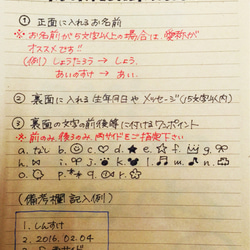 ① 正面に入れるお名前
※お名前が5文字以上の場合は、愛称が
オススメです!!
(例) しょうたろう → しょう.
あいのすけ → あい.
② 裏面に入れる生年月日やメッセージ(15文字以内)
③ 裏面の文字の前後等に付けるワンポイント
※前のみ、後ろのみ、両サイドをご指定下さい
a. なし b. ☺ c. ♡ d. ★ e. ☆ f. g.
h. i. j. k. l. ♫ m. ♪ n.
o. p. q. r.
(備考欄 記入例)
1. しんすけ
2. 2016.02.04